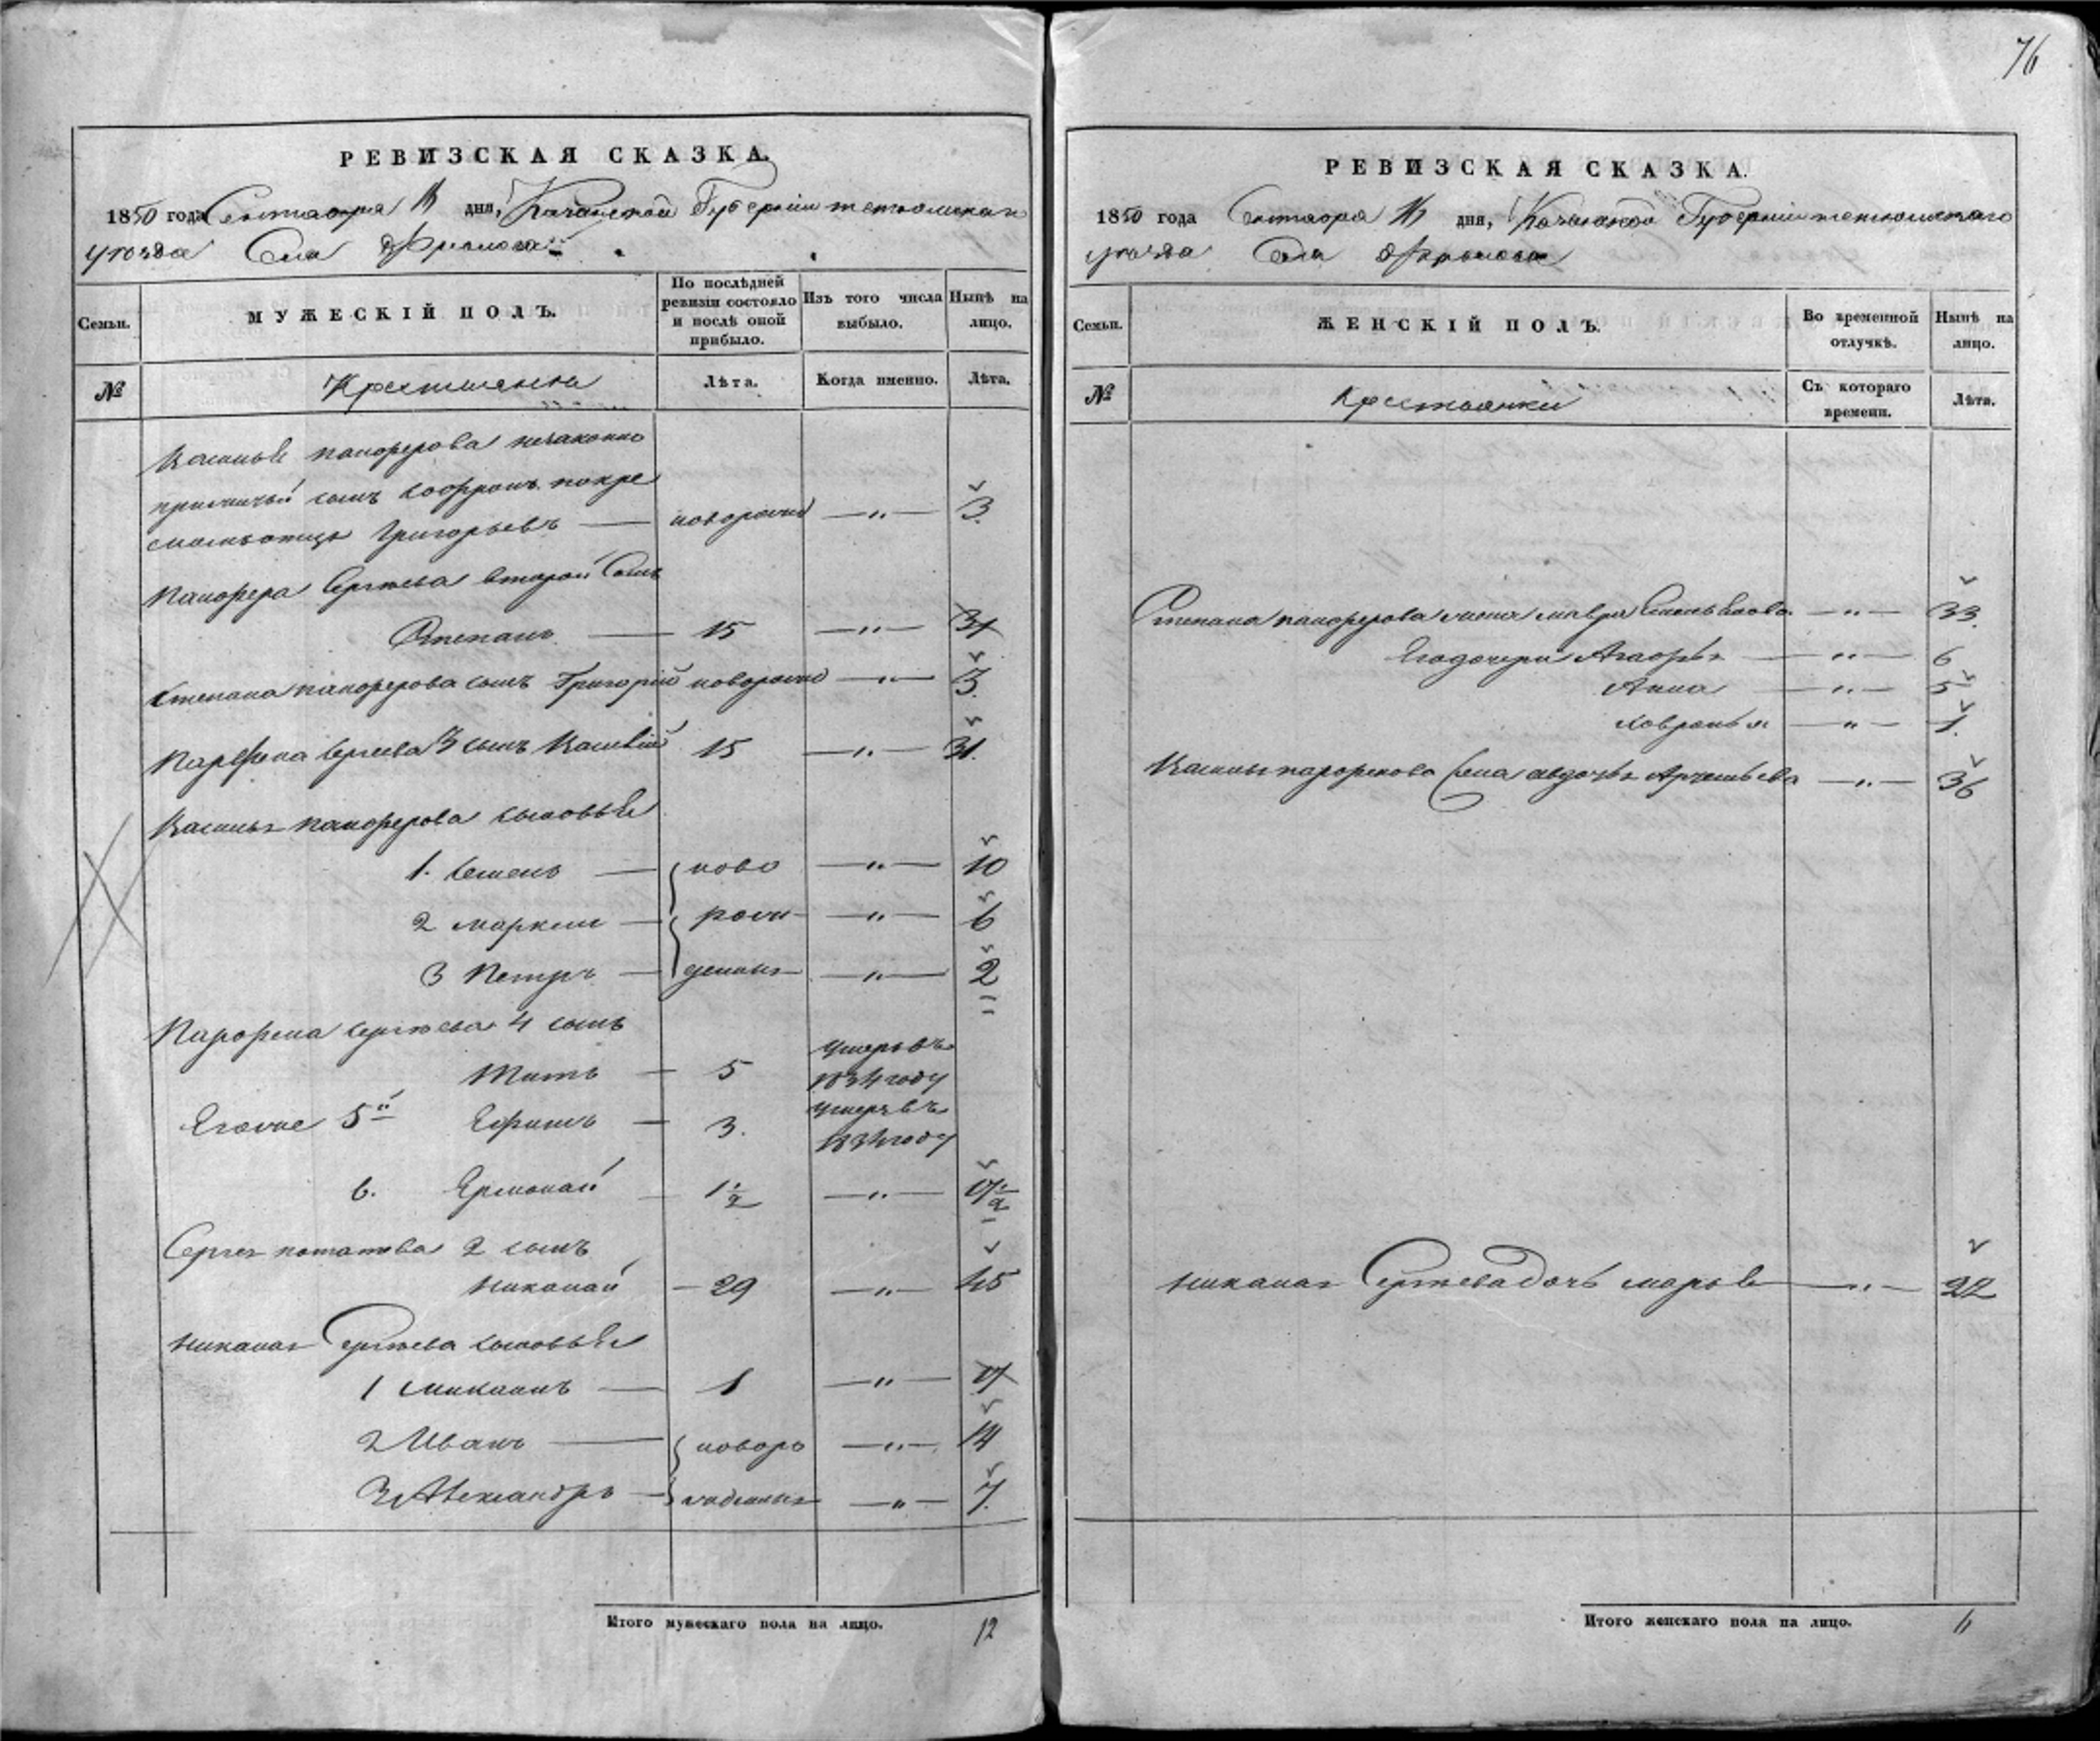 76
РЕВИЗСКАЯ СКАЗКА.
1850 года Сентября дня, Казанской Губернии тетюшскаго
уезда Села
Семьи. МУЖЕСКІЙ ПОЛЪ. По послѣдней ревизіи состояло и послѣ оной прибыло. Изъ того числа выбыло. Нынѣ на лицо.
№ Крестьяне Лѣта. Когда именно. Лѣта.
панферова незаконно
прижитый сынъ Софронъ по кре
стномъ отцу Григорьевъ — новорожд — " — 3.
Панфера Сергеева второй Сынъ
Степанъ — 15 — " — 31
Степана панферова сынъ Григорій новорожд — " — 3.
Парфена Сергеева 3 сынъ Василій 15 — " — 31.
панферова сыновья
1. Семенъ — ново — " — 10
2 — рож — " — 6
3 Петръ — денны — " — 2
Парфена Сергеева 4 сынъ
Титъ — 5 умеръ въ
1834 году
Еговже 5й Ефимъ — 3. умеръ въ
1834 году
6. Ермолай — 1½ — " — 17½
Сергея потапова 2 сынъ
Николай — 29 — " — 45
Николая Сергеева сыновья
1 — 1 — " — 17
2 Иванъ — новоро — " — 14
3 Александръ — жденныя — " — 7.
Итого мужескаго пола на лицо. 12
РЕВИЗСКАЯ СКАЗКА.
1850 года Сентября дня, Казанской Губернии тетюшскаго
уезда Села
Семьи. ЖЕНСКІЙ ПОЛЪ. Во временной отлучкѣ. Нынѣ на лицо.
№ Крестьянки Съ котораго времени. Лѣта.
Степана панферова жена мавра Емельянова — " — 33.
Его дочери Агафья — " — 6
Анна — " — 5
Хавронья — " — 1.
парфенова жена авдотья Артемьева — " — 36
Николая Сергеева дочь марья — " — 22
Итого женскаго пола на лицо. 6